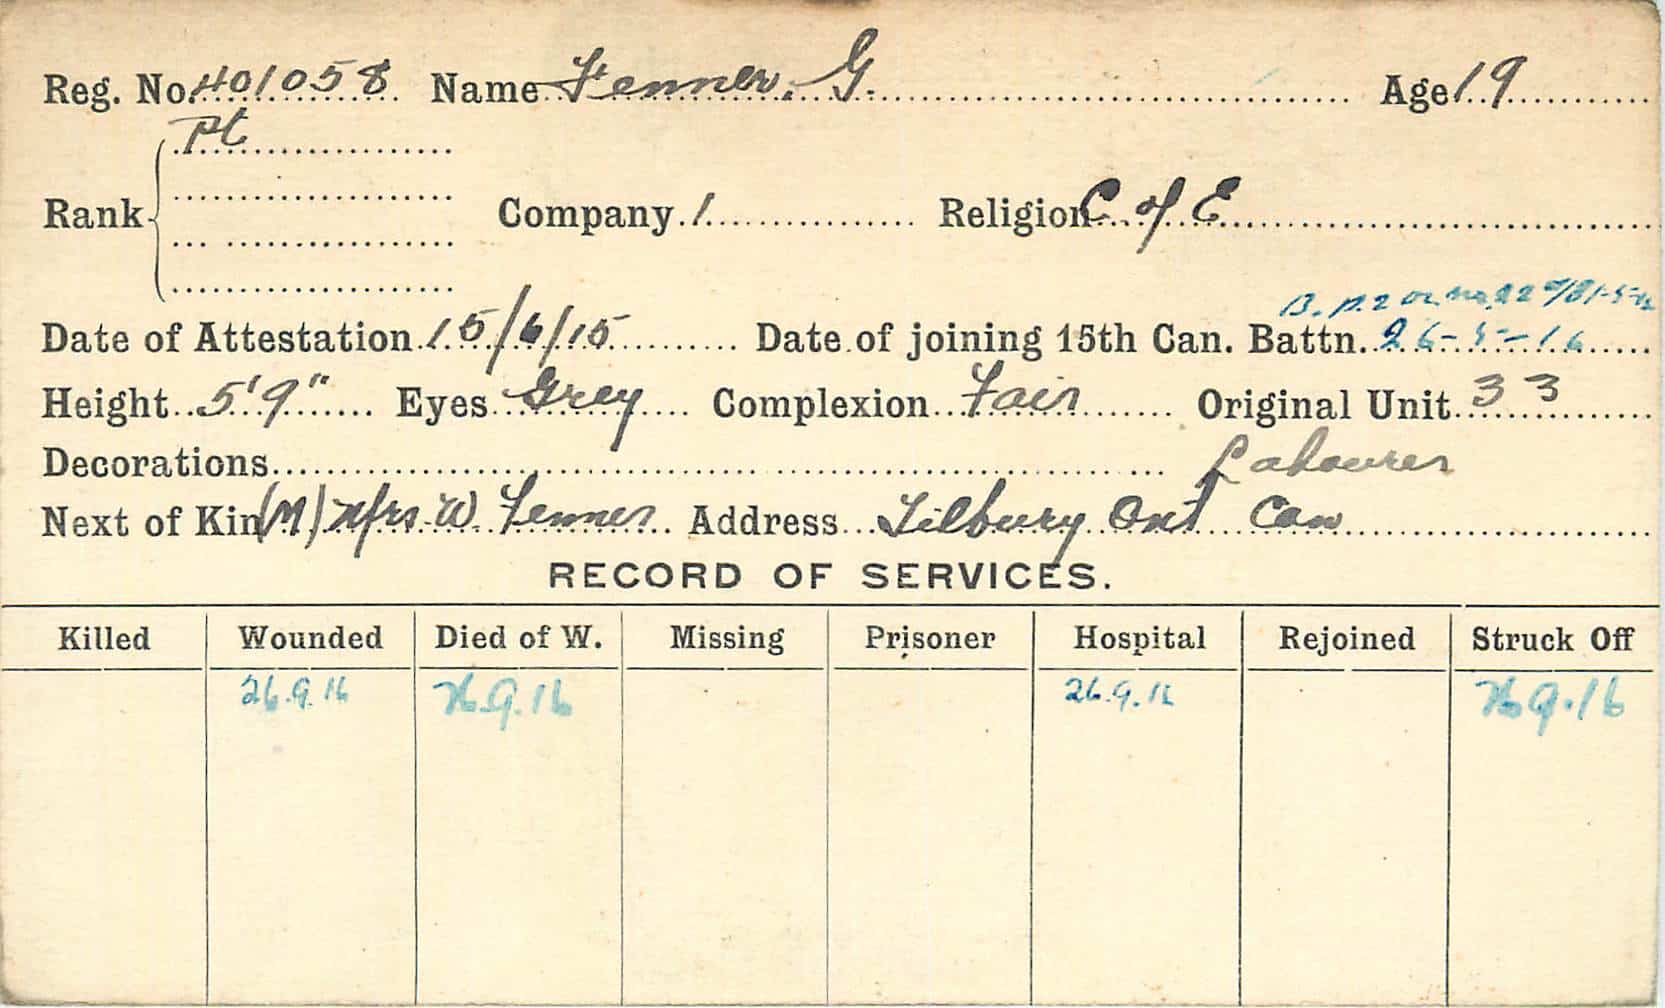 Reg. No. 401058 Name Fenner, G. Age 19
Pt
Rank Company 1 Religion C of E
B. p. 2 O.
Date of Attestation 15/6/15 Date of joining 15th Can. Battn. 26-5-16
Height 5'9" Eyes Grey Complexion Fair Original Unit 33
Decorations Labourer
Next of Kin (M) Mrs. W. Fenner Address Tilbury Ont Can
RECORD OF SERVICES.
Killed Wounded Died of W. Missing Prisoner Hospital Rejoined Struck Off
26.9.16 26.9.16 26.9.16 26.9.16